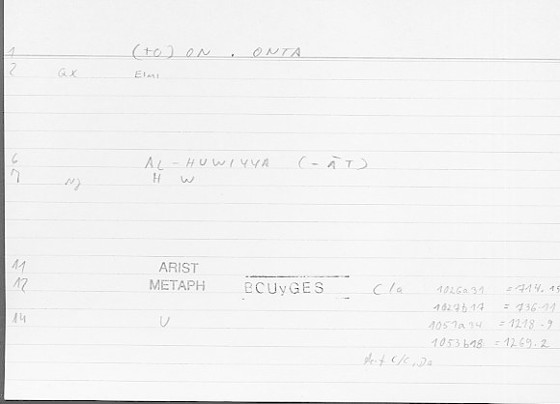 1 (TO) ON . ONTA
2 GX EIMI
6 AL - HUWIYYA (- ĀT)
7 H W
11 ARIST
12 METAPH BCUyGES C/a 1026a31 = 714.15
1027b17 = 736.11
14 U 1051a34 = 1218.9
1053b18 = 1269.2